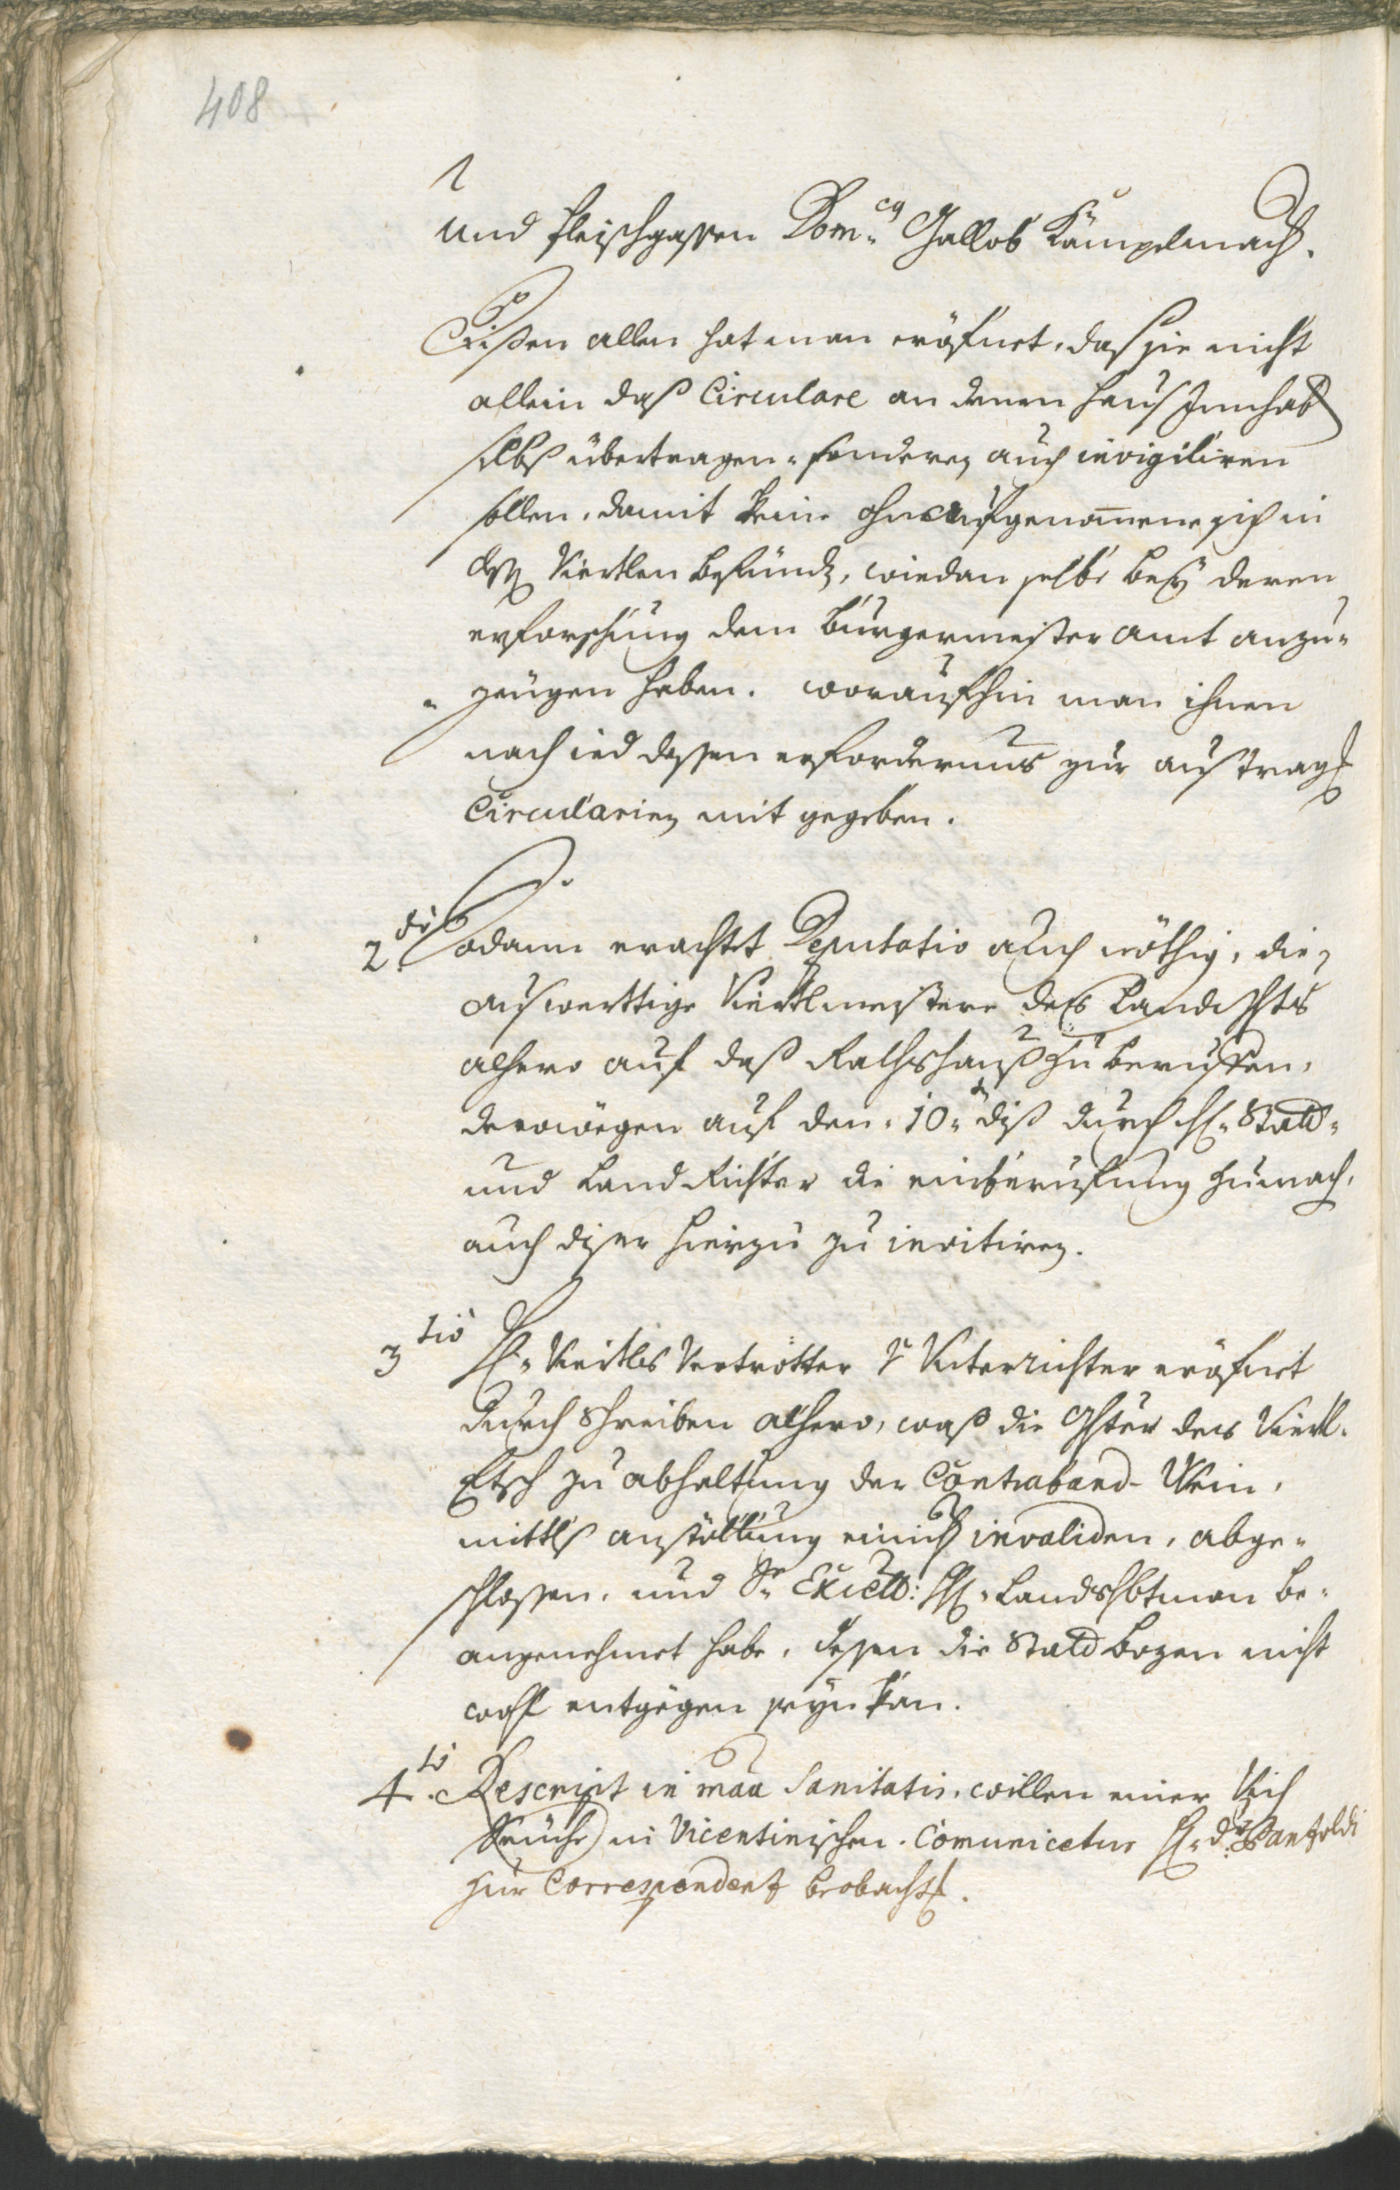 408
und fleischgassen Dom:co Gallob Kämpelmacher.
Disen allen hat man eröfnet, daß sie nicht
allein daß Circulare an denen Haus Innhabern
selbs übertragen, sonderen auch invigiliren
sollen, damit keine ohnaufgenom̄ene sich in
dessen Viertlen befünden, wiedan selbe bey deren
erforschung dem Burgermeister Amt anzu-
zeugen haben. woraufhin man ihnen
nach ied dessen erfordernus zur austragung
Circularien mit gegeben.
2do Sodann erachtet Deputatio auch nöthig, die
auswerttige Viertlmeistere des Landgerichts
alhero auf daß Rathshauß zu beruffen,
derowegen auf den 10ten diß durch H: Statt-
und Land Richter die einberuffung zumachen,
auch diser hierzu zu invitiren.
3tio H: Viertls Vertretter Unterrichter eröfnet
durch schreiben alhero, waß die Gster des Viertl
Etsch zu abhaltung der Contraband-Wein,
mittls anstöllung einicher invaliden, abge-
schlossen, und Sr Excell: H: Landshbtman be-
angenehmet habe, dessen die Statt Bozen nicht
wohl entgegen seyn kan.
4to Rescript in maa Sanitatis, willen einer Vich
Seuche in Vicentinischen. Comunicetur H: dr Panzoldi
zur Correspondenz beobachtung.